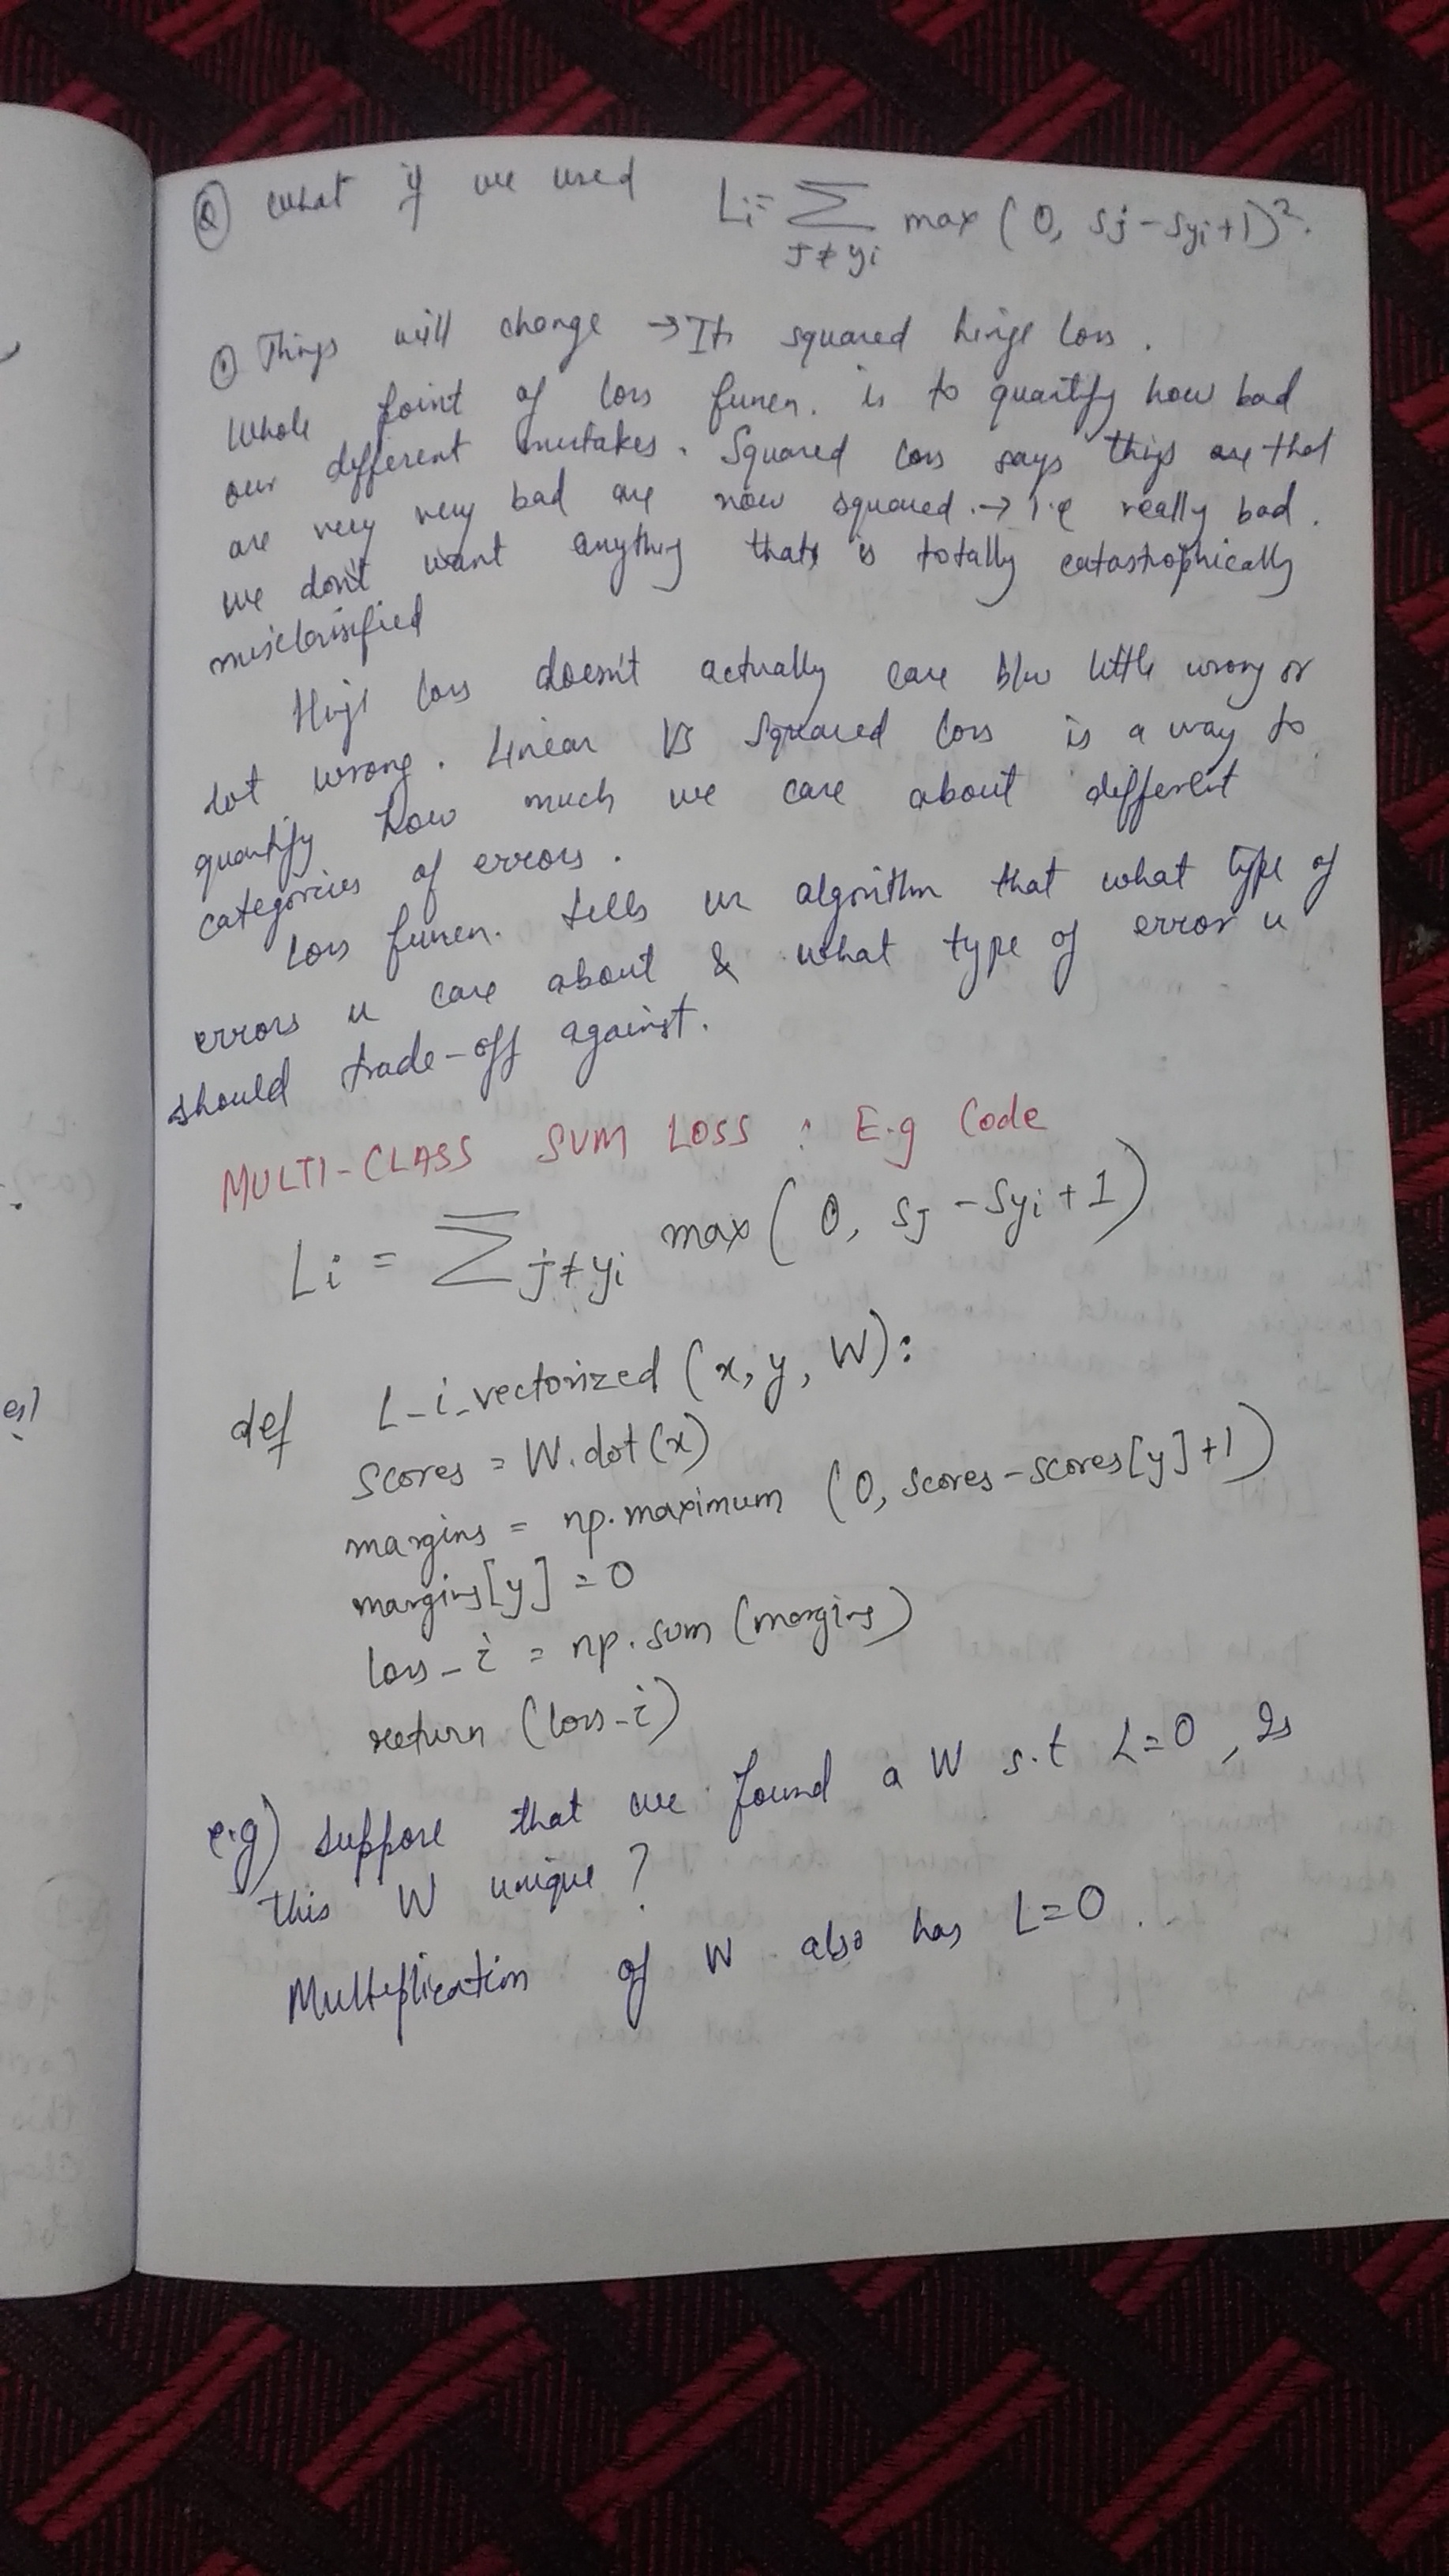 Q What if we used Li = Σ j≠yi max (0, sj - syi + 1)².
① Things will change → Its squared hinge loss.
Whole point of loss funcn. is to quantify how bad
our different mistakes. Squared loss says things are that
are very very bad are now squared. → i.e really bad.
we don't want anything thats is totally catastrophically
misclassified
Hinge loss doesn't actually care b/w little wrong or
lot wrong. Linear VS Squared loss is a way to
quantify how much we care about different
categories of errors.
Loss funcn. tells ur algorithm that what type of
errors u care about & what type of error u
should trade-off against.
MULTI-CLASS SUM LOSS : E.g Code
Li = Σ j≠yi max (0, sj - syi + 1)
def L_i_vectorized (x, y, W):
Scores = W.dot(x)
margins = np.maximum (0, scores - scores[y] + 1)
margins[y] = 0
loss_i = np.sum (margins)
return (loss_i)
e.g) Suppose that we found a W s.t L=0, Is
this W unique?
Multiplication of W also has L=0.
es)